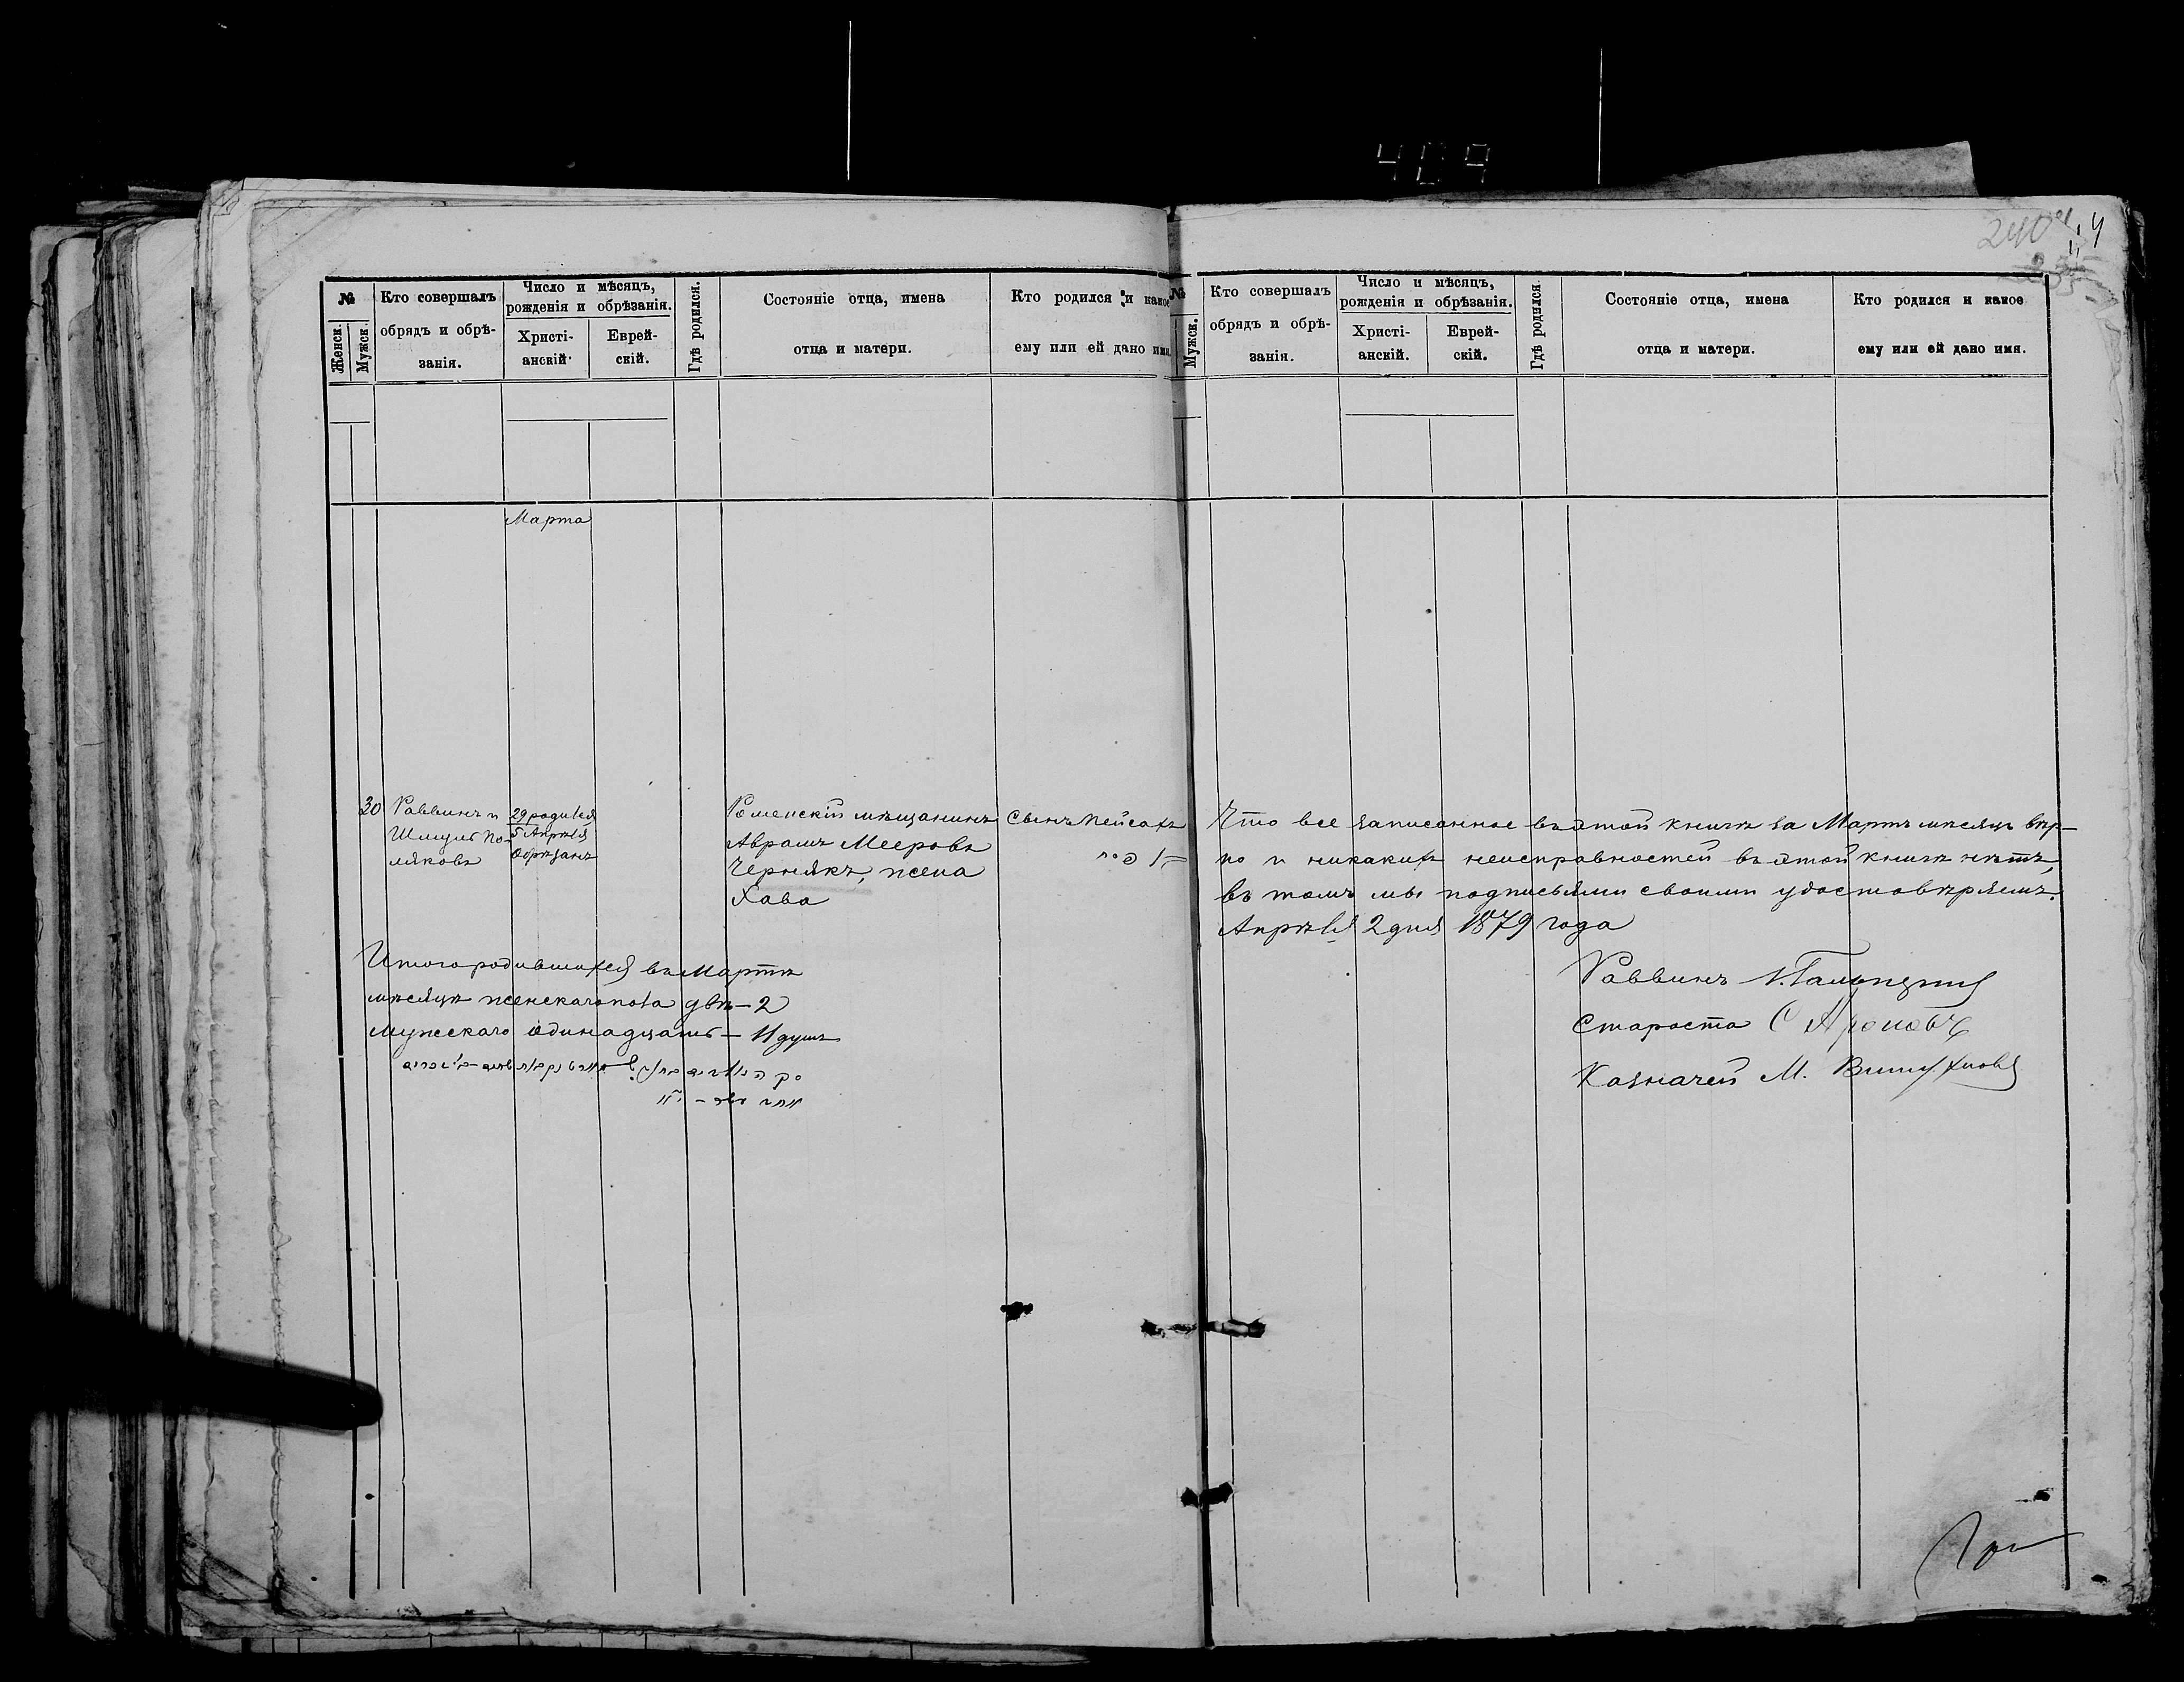 409
240
№
Женск.
Мужск.
Кто совершалъ
обрядъ и обрѣ-
занія.
Число и мѣсяцъ,
рожденія и обрѣзанія.
Христі-
анскій.
Еврей-
скій.
Гдѣ родился.
Состояніе отца, имена
отца и матери.
Кто родился и какое
ему или ей дано имя
Марта
30
Раввинъ и
Шмуль По-
ляковъ
29 родился
5 Апрѣля
обрѣзанъ
Роменскій мѣщанинъ
Авраамъ Мееровъ
Чернякъ, жена
Хава
Сынъ Пейсахъ
Итого родившихся въ Мартѣ
мѣсяцѣ женскаго пола двѣ – 2
мужскаго одинадцать – 11 душъ
№
Мужск.
Кто совершалъ
обрядъ и обрѣ-
занія.
Число и мѣсяцъ,
рожденія и обрѣзанія.
Христі-
анскій.
Еврей-
скій.
Гдѣ родился.
Состояніе отца, имена
отца и матери.
Кто родился и какое
ему или ей дано имя.
Что все записанное въ этой книгѣ за Мартъ мѣсяцъ вѣр-
но и никакихъ неисправностей въ этой книгѣ нѣтъ,
въ томъ мы подписьями своими удостовѣряемъ.
Апрѣля 2 дня 1879 года
Раввинъ
Староста С Ароновъ
Казначей М.